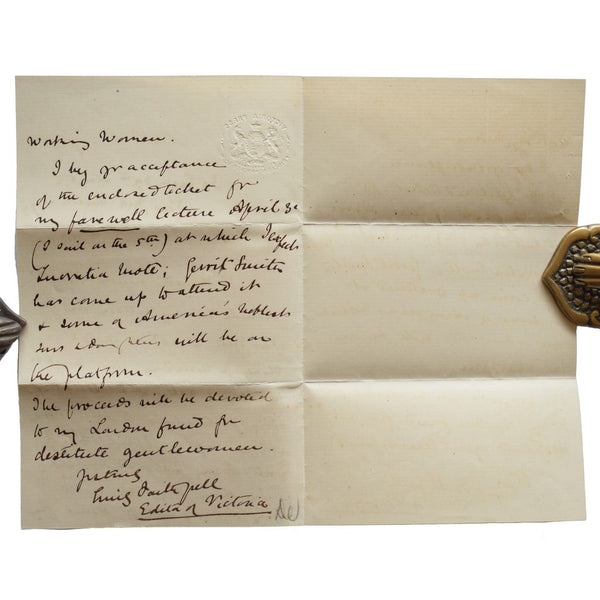 VICTORIA PRESS
Working Women.
I beg yr acceptance
of the enclosed ticket for
my farewell lecture April 3d
(I sail on the 5th) at which I expect
Lucretia Mott; Gerrit Smith
has come up to attend it
& some of America's noblest
sons & daughters will be on
the platform.
The proceeds will be devoted
to my London fund for
destitute gentlewomen.
yrs truly
Emily Faithfull
Editor of Victoria